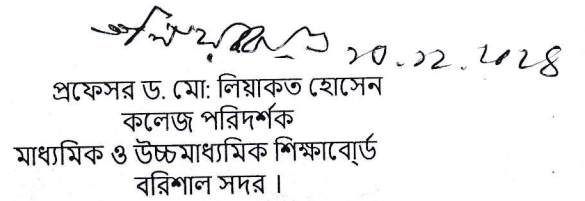 ২০.১২.২০২৪
প্রফেসর ড. মো: লিয়াকত হোসেন
কলেজ পরিদর্শক
মাধ্যমিক ও উচ্চমাধ্যমিক শিক্ষাবোর্ড
বরিশাল সদর ।